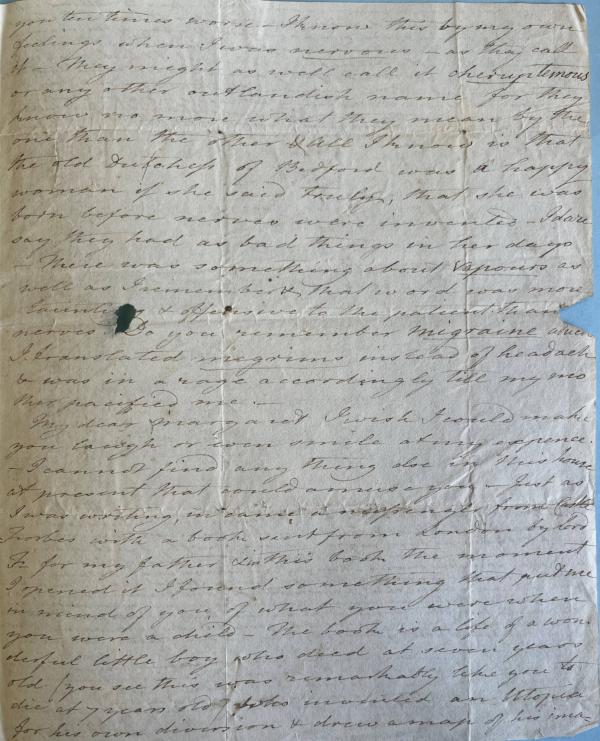 you ten times worse – I know this by my own
feelings when I was nervous – as they call
it – They might as well call it cheruptimous
or any other outlandish name for they
know no more what they mean by the
one than the other & All I know is that
the old Dutchess of Bedford was a happy
woman if she said truly, that she was
born before nerves were invented – I dare
say they had as bad things in her days
– There was something about Vapours as
well as I remember & that word was more
taunting & offensive to the patient than
nerves – Do you remember migraine which
I translated megrims instead of headach
& was in a rage accordingly till my mo
ther pacified me. –
My dear Margaret I wish I could make
you laugh or even smile at my expence.
– I cannot find any thing else in this house
at present that could amuse you – Just as
I was writing, in came a messenger from Castle
Forbes with a book sent from London by Lord
F. for my father & in this book the moment
I opened it I found something that put me
in mind of you, of what you were when
you were a child – The book is a life of a won
derful little boy who died at seven years
old (you see this was remarkably like you to
die at 7 years old) who invented an Utopia
for his own diversion & drew a map of his ima-